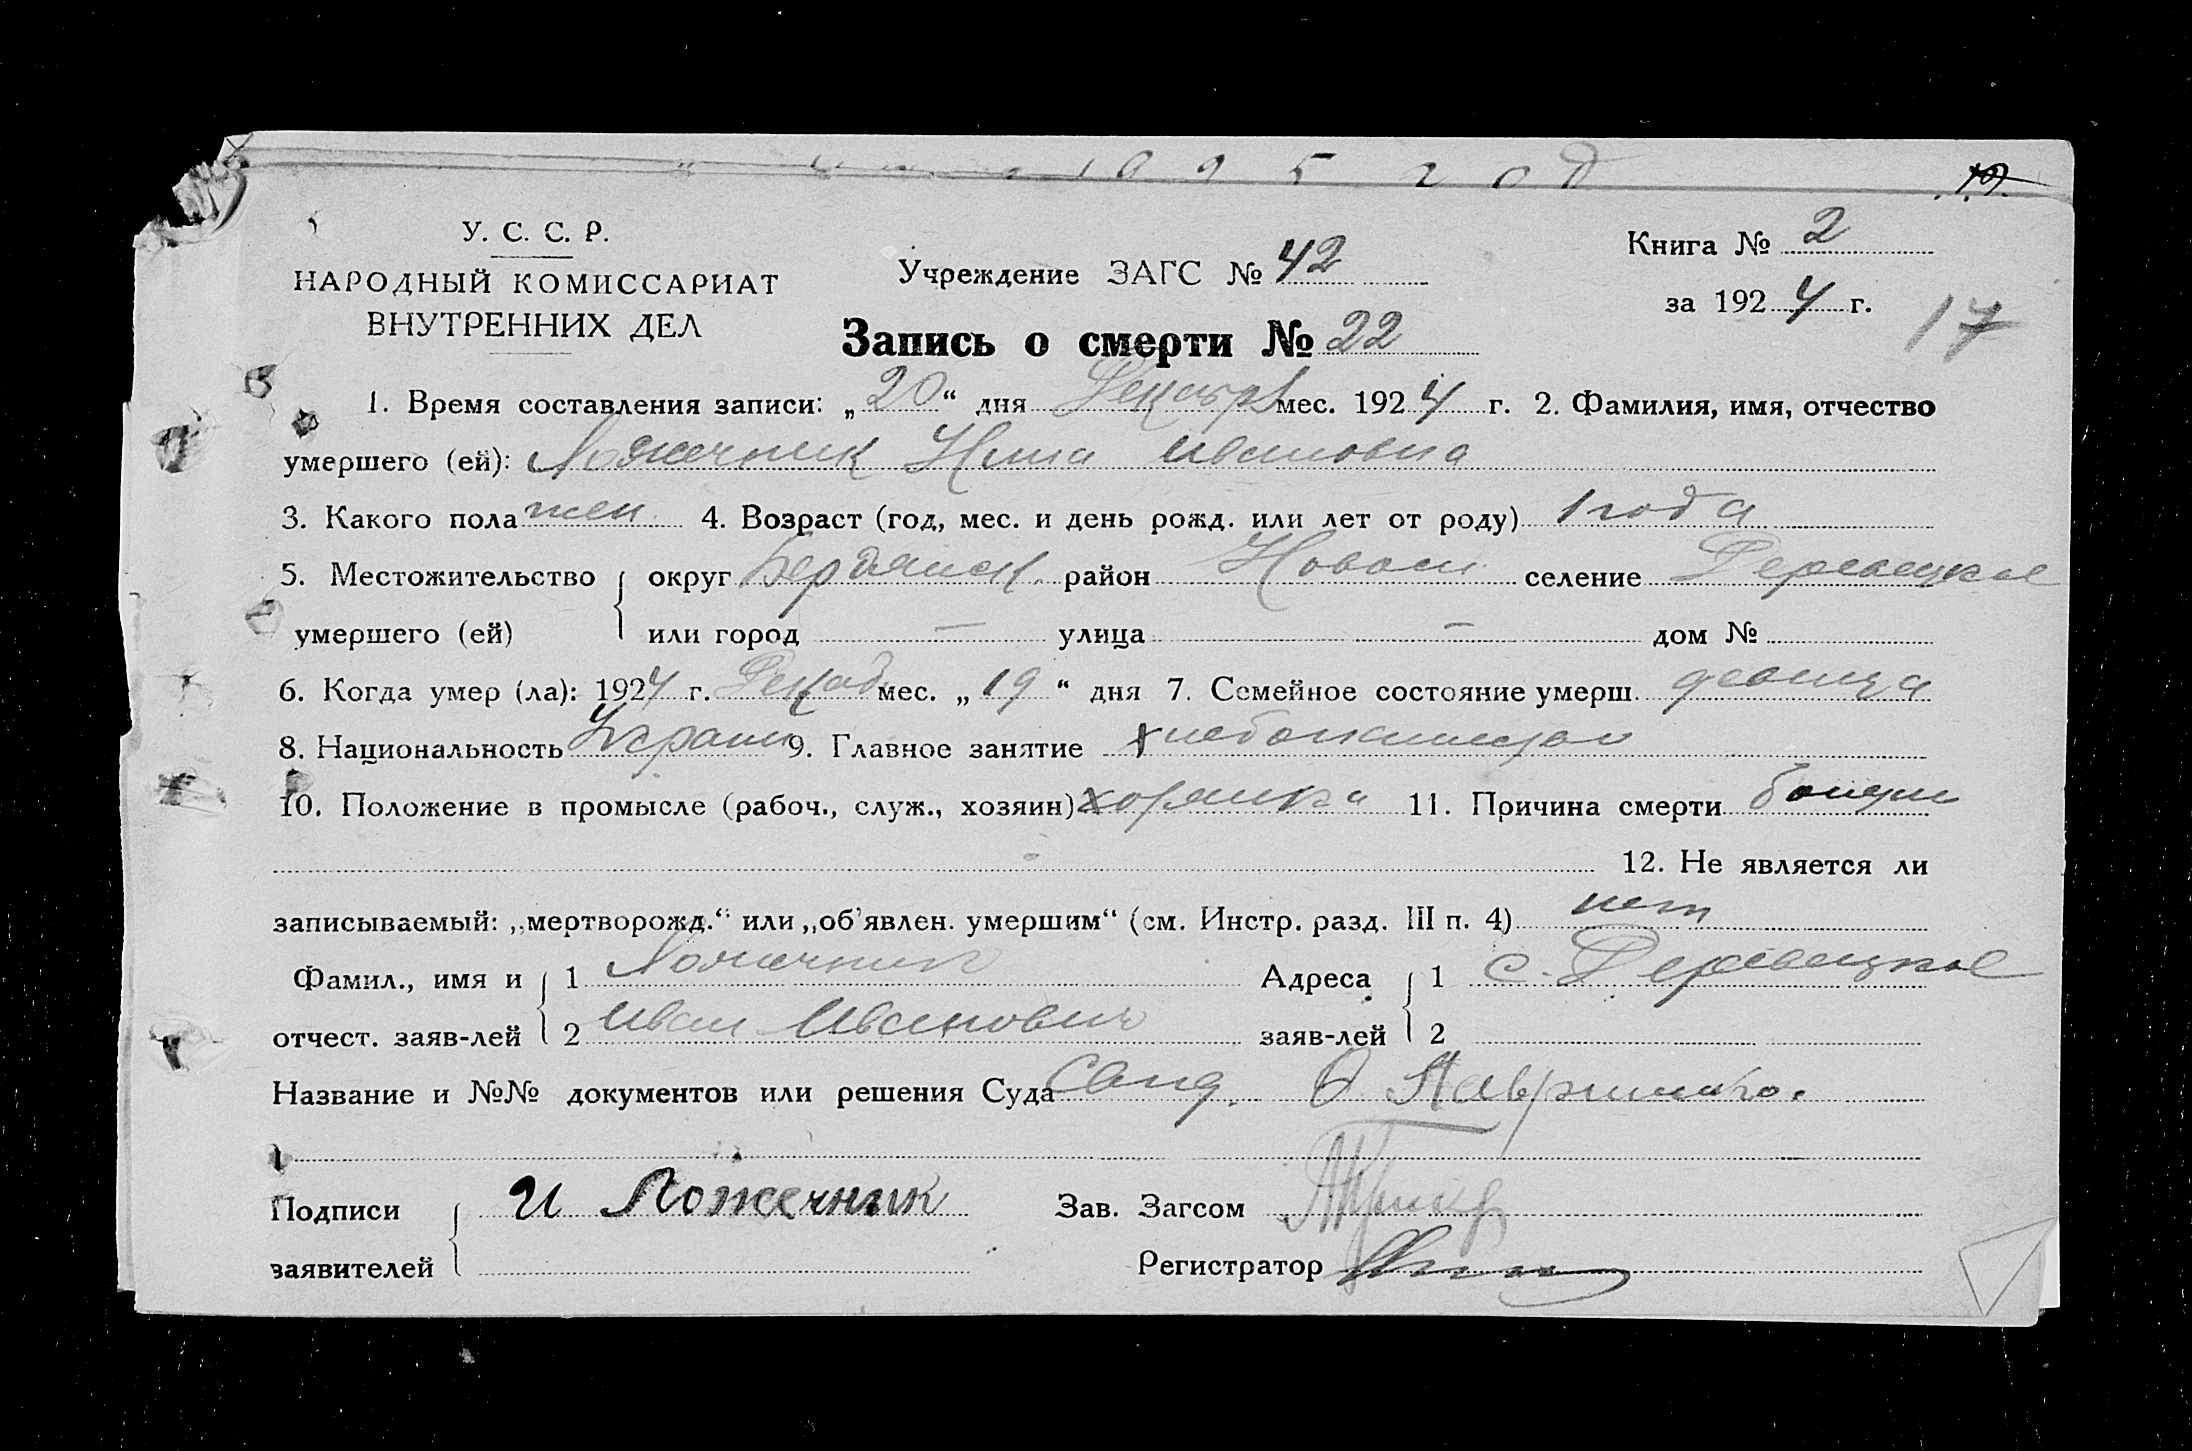 1925 год
19.
У. С. С. Р.
НАРОДНЫЙ КОМИССАРИАТ
ВНУТРЕННИХ ДЕЛ
Учреждение ЗАГС № 42
Книга № 2
за 1924 г.
17
Запись о смерти № 22
1. Время составления записи: „20“ дня Декабря мес. 1924 г. 2. Фамилия, имя, отчество
умершего (ей): Ложечник Нина Ивановна
3. Какого пола жен 4. Возраст (год, мес. и день рожд. или лет от роду) 1 года
5. Местожительство округ Бердянск. район Новосп. селение
умершего (ей) или город — улица — дом №
6. Когда умер (ла): 1924 г. мес. „19“ дня 7. Семейное состояние умерш. девица
8. Национальность Украин 9. Главное занятие
10. Положение в промысле (рабоч., служ., хозяин) 11. Причина смерти
12. Не является ли
записываемый: „мертворожд.“ или „об'явлен. умершим“ (см. Инстр. разд. III п. 4) нет
Фамил., имя и 1 Ложечник Адреса 1 с.
отчест. заяв-лей 2 Иван Иванович заяв-лей 2
Название и №№ документов или решения Суда
Подписи И Ложечник Зав. Загсом
заявителей Регистратор